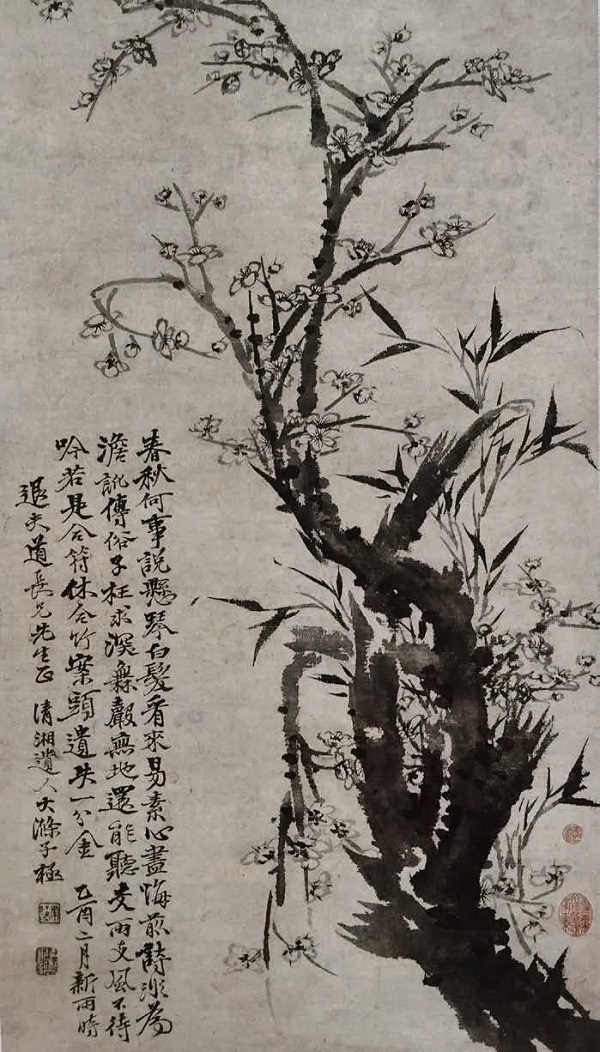 春秋何事說懸琴白髮看來易素心盡悔前詩非爲
澹訛傳俗子枉求深無聲無地還能聽支雨支風不待
吟若是合符休合竹案頭遺失一分金 乙酉二月新雨時
退夫道長兄先生正 清湘遺人大滌子極